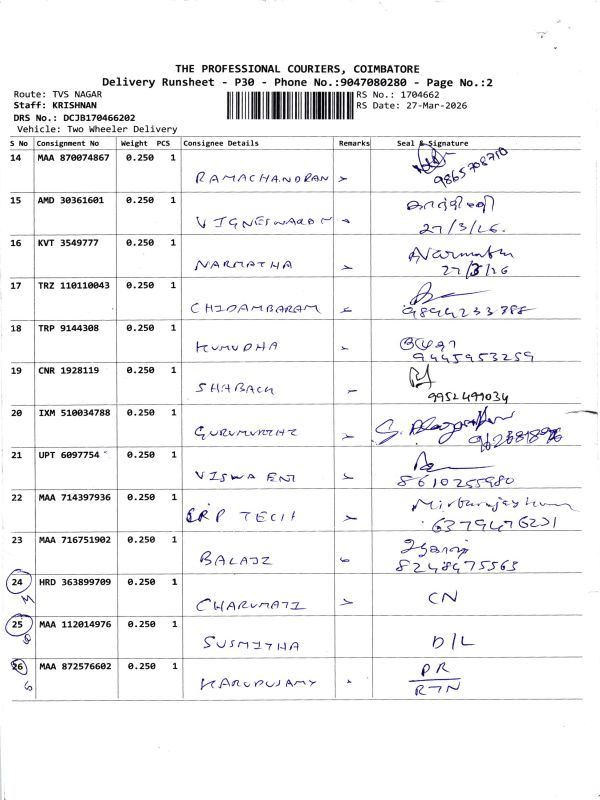 THE PROFESSIONAL COURIERS, COIMBATORE
Delivery Runsheet - P30 - Phone No.:9047080280 - Page No.:2
Route: TVS NAGAR
RS No.: 1704662
Staff: KRISHNAN
RS Date: 27-Mar-2026
DRS No.: DCJB170466202
Vehicle: Two Wheeler Delivery
S No Consignment No Weight PCS Consignee Details Remarks Seal & Signature
14 MAA 870074867 0.250 1
RAMACHANDRAN 9865708710
15 AMD 30361601 0.250 1
27/3/26.
16 KVT 3549777 0.250 1
NARMATHA 27/3/26
17 TRZ 110110043 0.250 1
CHIDAMBARAM 9894233788
18 TRP 9144308 0.250 1
KUMUDHA 9445953259
19 CNR 1928119 0.250 1
SHABACK 9952499034
20 IXM 510034788 0.250 1
GURUMURTHI
21 UPT 6097754 0.250 1
VISWA ENT 8610255980
22 MAA 714397936 0.250 1
ERP TECH 6379476231
23 MAA 716751902 0.250 1
BALAJI 8248475563
24 HRD 363899709 0.250 1
CHARUMATI CN
25 MAA 112014976 0.250 1
SUSMITHA D/L
26 MAA 872576602 0.250 1
KARUPUSAMY PR
RTN